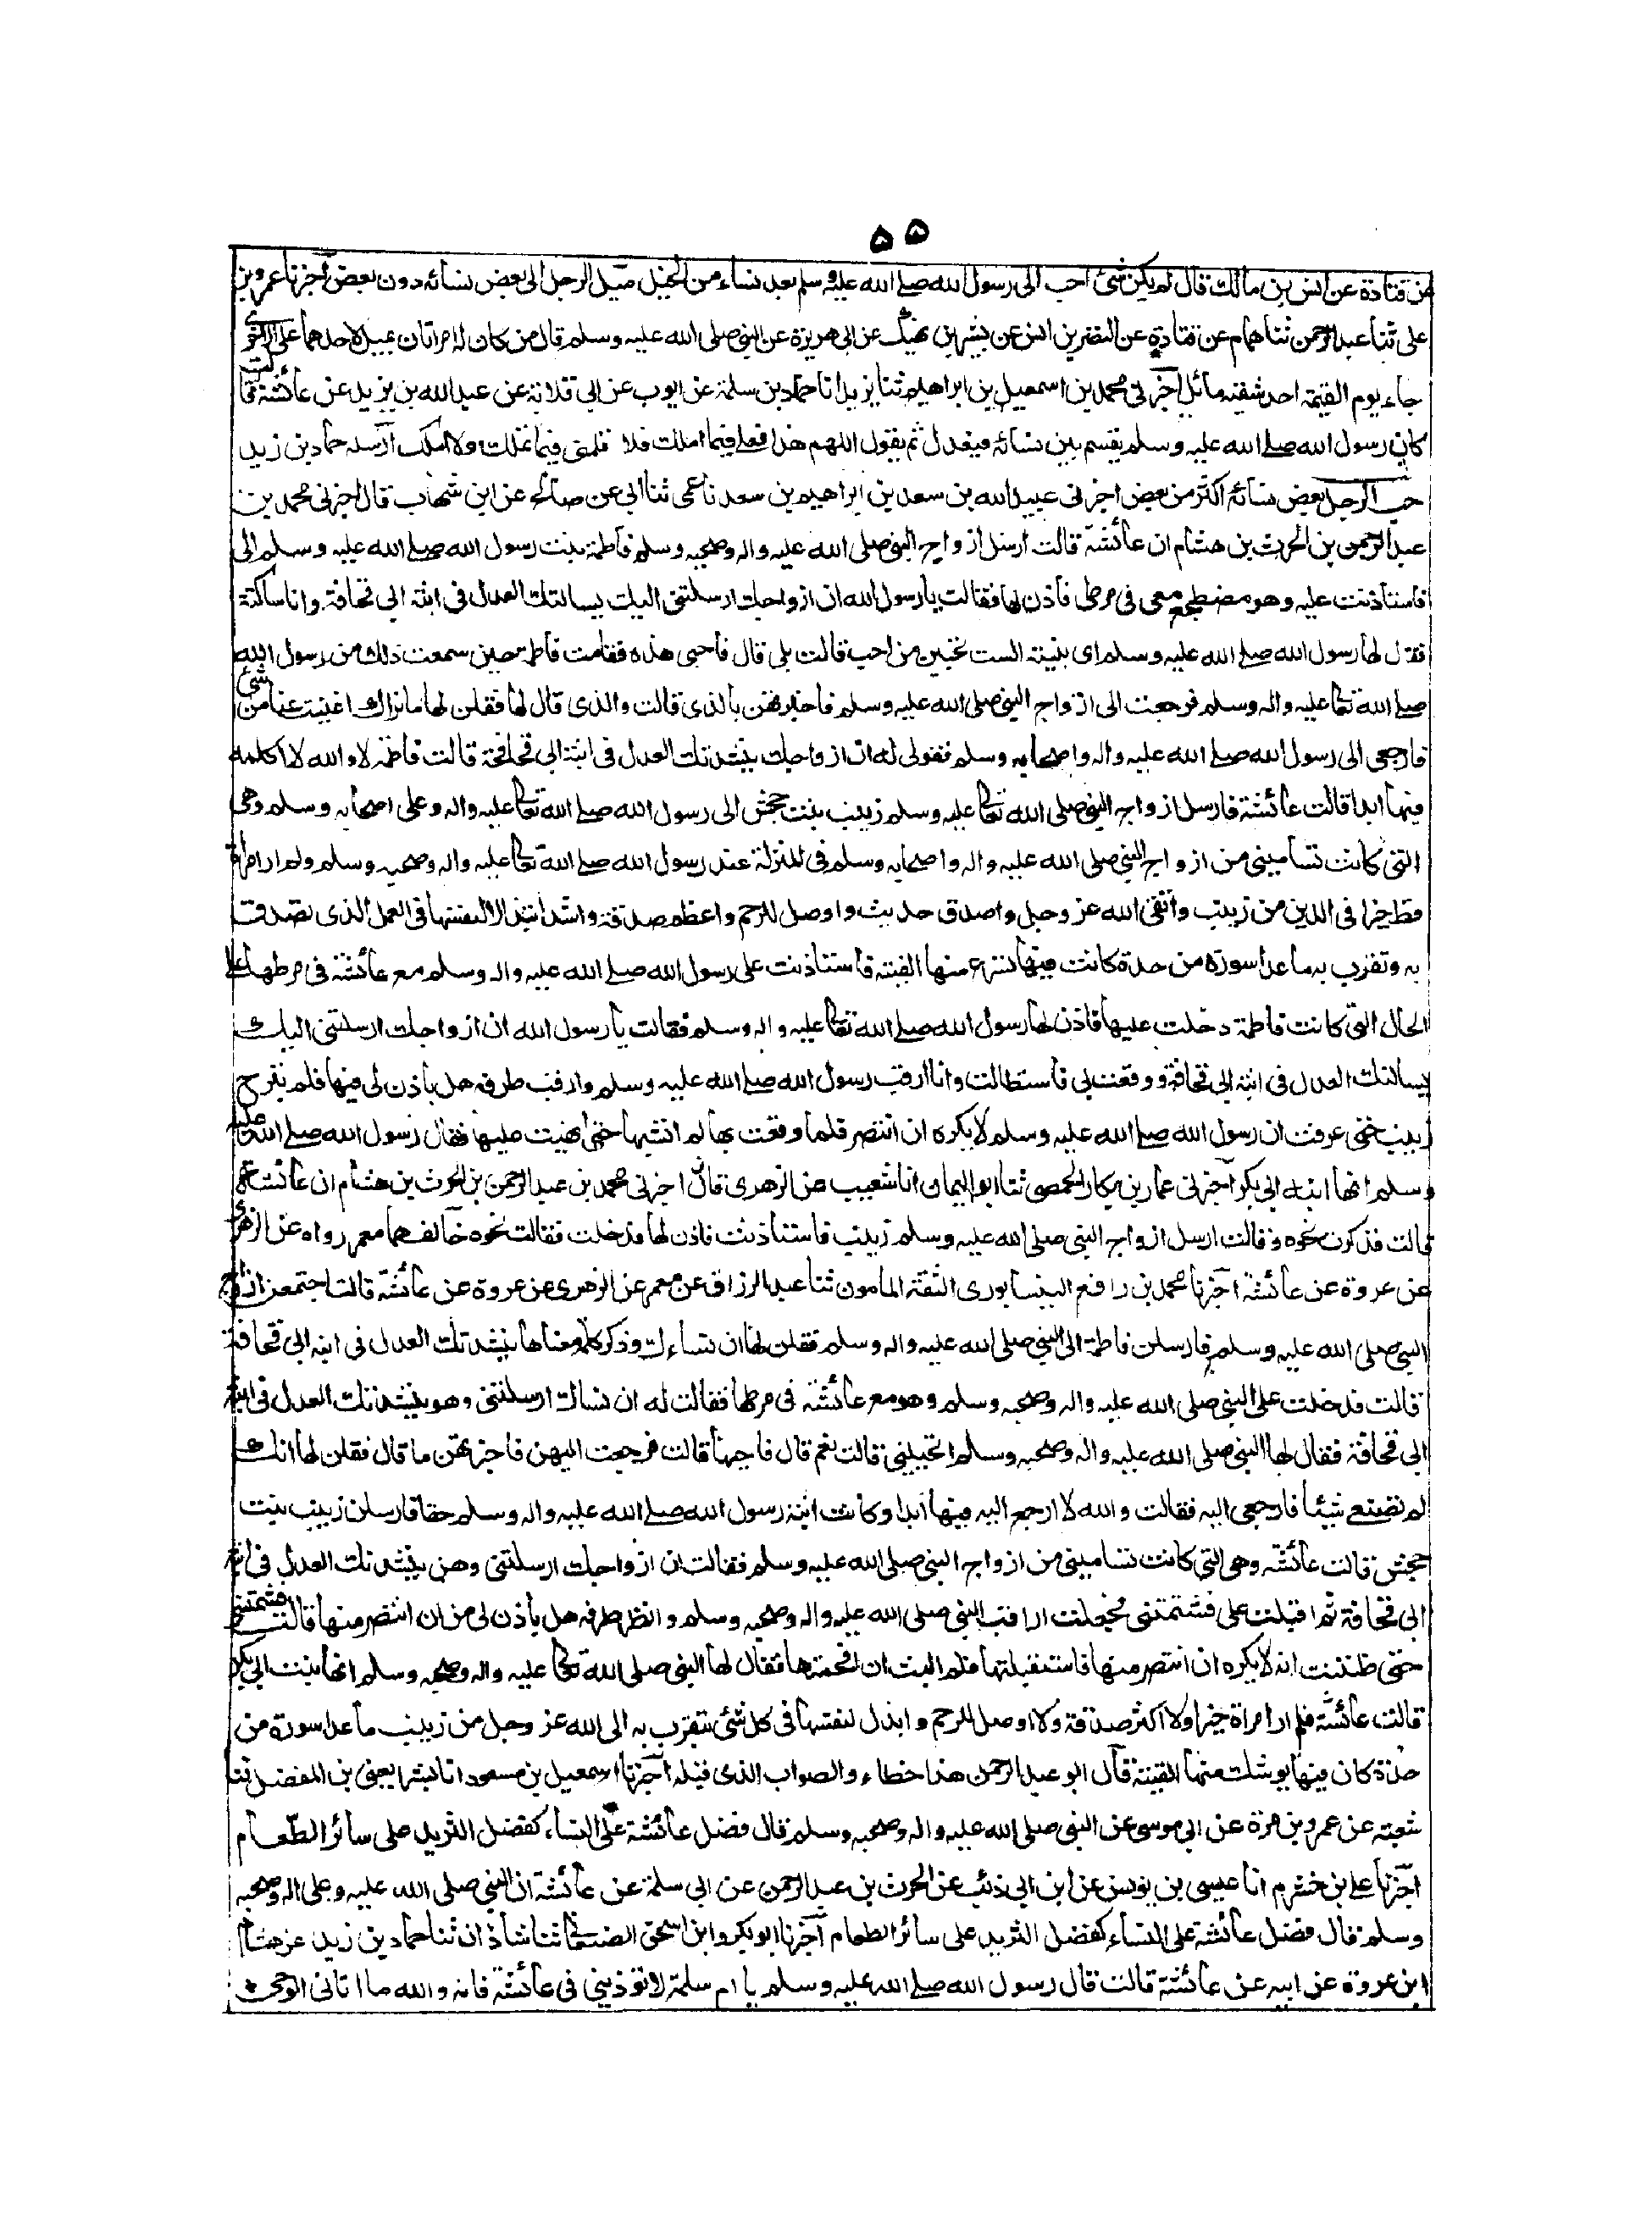 ۵۵
عن قتادة عن انس بن مالك قال لم يكن شئ احب الى رسول الله صلے الله عليه وسلم بعد نساء من الخيل ميل الرجل الى بعض نسائه دون بعض اخبرنا عمرو بن
على ثنا عبد الرحمن ثنا همام عن قتادة عن النضر بن انس عن بشير بن نهيك عن ابى هريرة عن النبى صلى الله عليه وسلم قال من كان له امراتان يميل لاحدهما على الاخرى
جاء يوم القيمة احد شقيه مائل اخبرنى محمد بن اسمعيل بن ابراهيم ثنا يزيد انا حماد بن سلمة عن ايوب عن ابى قلابة عن عبد الله بن يزيد عن عائشة قالت
كان رسول الله صلے الله عليه وسلم يقسم بين نسائه فيعدل ثم يقول اللهم هذا فعلے فيما املك فلا تلمنى فيما تملك ولا املك ارسله حماد بن زيد
حب الرجل بعض نسائه اكثر من بعض اخبرنى عبيد الله بن سعد بن ابراهيم بن سعد نا عمى ثنا ابى عن صالح عن ابن شهاب قال اخبرنى محمد بن
عبد الرحمن بن الحرث بن هشام ان عائشة قالت ارسل ازواج النبى صلى الله عليه واله وصحبه وسلم فاطمة بنت رسول الله صلے الله عليه وسلم الى
فاستأذنت عليه وهو مضطجع معى فى مرطى فأذن لها فقالت يا رسول الله ان ازواجك ارسلتنى اليك يسالنك العدل فى ابنة ابى قحافة وانا ساكتة
فقال لها رسول الله صلے الله عليه وسلم اى بنية الست تحبين من احب قالت بلى قال فاحبى هذه فقامت فاطمة حين سمعت ذلك من رسول الله
صلے الله تعا عليه واله وسلم فرجعت الى ازواج النبى صلى الله عليه وسلم فاخبرتهن بالذى قالت والذى قال لها فقلن لها ما نراك اغنيت عنا من شئ
فارجعى الى رسول الله صلے الله عليه واله واصحابه وسلم فقولى له ان ازواجك ينشدنك العدل فى ابنة ابى قحافة قالت فاطمة لا والله لا اكلمه
فيها ابدا قالت عائشة فارسل ازواج النبى صلى الله تعا عليه وسلم زينب بنت جحش الى رسول الله صلے الله تعا عليه واله وعلى اصحابه وسلم وهى
التى كانت تسامينى من ازواج النبى صلى الله عليه واله واصحابه وسلم فى المنزلة عند رسول الله صلے الله تعا عليه واله وصحبه وسلم ولم ار امراة
قط خيرا فى الدين من زينب واتقى الله عز وجل واصدق حديث واوصل للرحم واعظم صدقة واشد ابتذالا لنفسها فى العمل الذى تصدقت
به وتقرب به ما عدا سورة من حدة كانت فيها تسرع منها الفيئة فاستاذنت على رسول الله صلے الله عليه واله وسلم مع عائشة فى مرطها على
الحال التى كانت فاطمة دخلت عليها فاذن لها رسول الله صلے الله تعا عليه واله وسلم فقالت يا رسول الله ان ازواجك ارسلتنى اليك
يسالنك العدل فى ابنة ابى قحافة ووقعت بى فاستطالت وانا ارقب رسول الله صلے الله عليه وسلم وارقب طرفه هل ياذن لى فيها فلم تبرح
زينب حتى عرفت ان رسول الله صلے الله عليه وسلم لا يكره ان انتصر فلما وقعت بها لم انشبها حتى انحيت عليها فقال رسول الله صلے الله عليه
وسلم انها ابنة ابى بكر اخبرنى عمار بن بكار الحمصى ثنا ابو اليمان انا شعيب عن الزهرى قال اخبرنى محمد بن عبد الرحمن بن الحرث بن هشام ان عائشة
قالت فذكرت نحوه وقالت ارسل ازواج النبى صلى الله عليه وسلم زينب فاستأذنت فاذن لها فدخلت فقالت نحوه خالفهما معمر رواه عن الزهرى
عن عروة عن عائشة اخبرنا محمد بن رافع النيسابورى الثقة المامون ثنا عبد الرزاق عن معمر عن الزهرى عن عروة عن عائشة قالت اجتمعن ازواج
النبى صلى الله عليه وسلم فارسلن فاطمة الى النبى صلى الله عليه واله وسلم فقلن لها ان نساءك وذكر كلمة معناها ينشدنك العدل فى ابنة ابى قحافة
قالت فدخلت على النبى صلى الله عليه واله وصحبه وسلم وهو مع عائشة فى مرطها فقالت له ان نساك ارسلننى وهو ينشدنك العدل فى ابنة
ابى قحافة فقال لها النبى صلى الله عليه واله وصحبه وسلم اتحبينى قالت نعم قال فاحبها قالت فرجعت اليهن فاخبرتهن ما قال فقلن لها انك
لم تصنعى شيئا فارجعى اليه فقالت والله لا ارجع اليه فيها ابدا وكانت ابنة رسول الله صلے الله عليه واله وسلم حقا فارسلن زينب بنت
جحش قالت عائشة وهى التى كانت تسامينى من ازواج النبى صلى الله عليه وسلم فقالت ان ازواجك ارسلننى وهن ينشدنك العدل فى ابنة
ابى قحافة ثم اقبلت على فشتمتنى فجعلت اراقب النبى صلى الله عليه واله وصحبه وسلم وانظر طرفه هل ياذن لى من ان انتصر منها قالت فشتمتنى
حتى ظننت انه لا يكره ان انتصر منها فاستقبلتها فلم البث ان افحمتها فقال لها النبى صلى الله تعا عليه واله وصحبه وسلم انها بنت ابى بكر
قالت عائشة فلم ار امراة خيرا ولا اكثر صدقة ولا اوصل للرحم وابذل لنفسها فى كل شئ يتقرب به الى الله عز وجل من زينب ما عدا سورة من
حدة كان فيها يوشك منها الفيئة قال ابو عبد الرحمن هذا خطاء والصواب الذى قبله اخبرنا اسمعيل بن مسعود انا بشر يعنى بن المفضل ثنا
شعبة عن عمرو بن مرة عن ابى موسى عن النبى صلى الله عليه واله وصحبه وسلم قال فضل عائشة على النساء كفضل الثريد على سائر الطعام
اخبرنا على بن خشرم انا عيسى بن يونس عن ابن ابى ذئب عن الحرث بن عبد الرحمن عن ابى سلمة عن عائشة ان النبى صلى الله عليه وعلى اله وصحبه
وسلم قال فضل عائشة على النساء كفضل الثريد على سائر الطعام اخبرنا ابو بكر وابن اسحق الصنعانى ثنا شاذان ثنا حماد بن زيد عن هشام
ابن عروة عن ابيه عن عائشة قالت قال رسول الله صلے الله عليه وسلم يا ام سلمة لا تؤذينى فى عائشة فانه والله ما اتانى الوحى